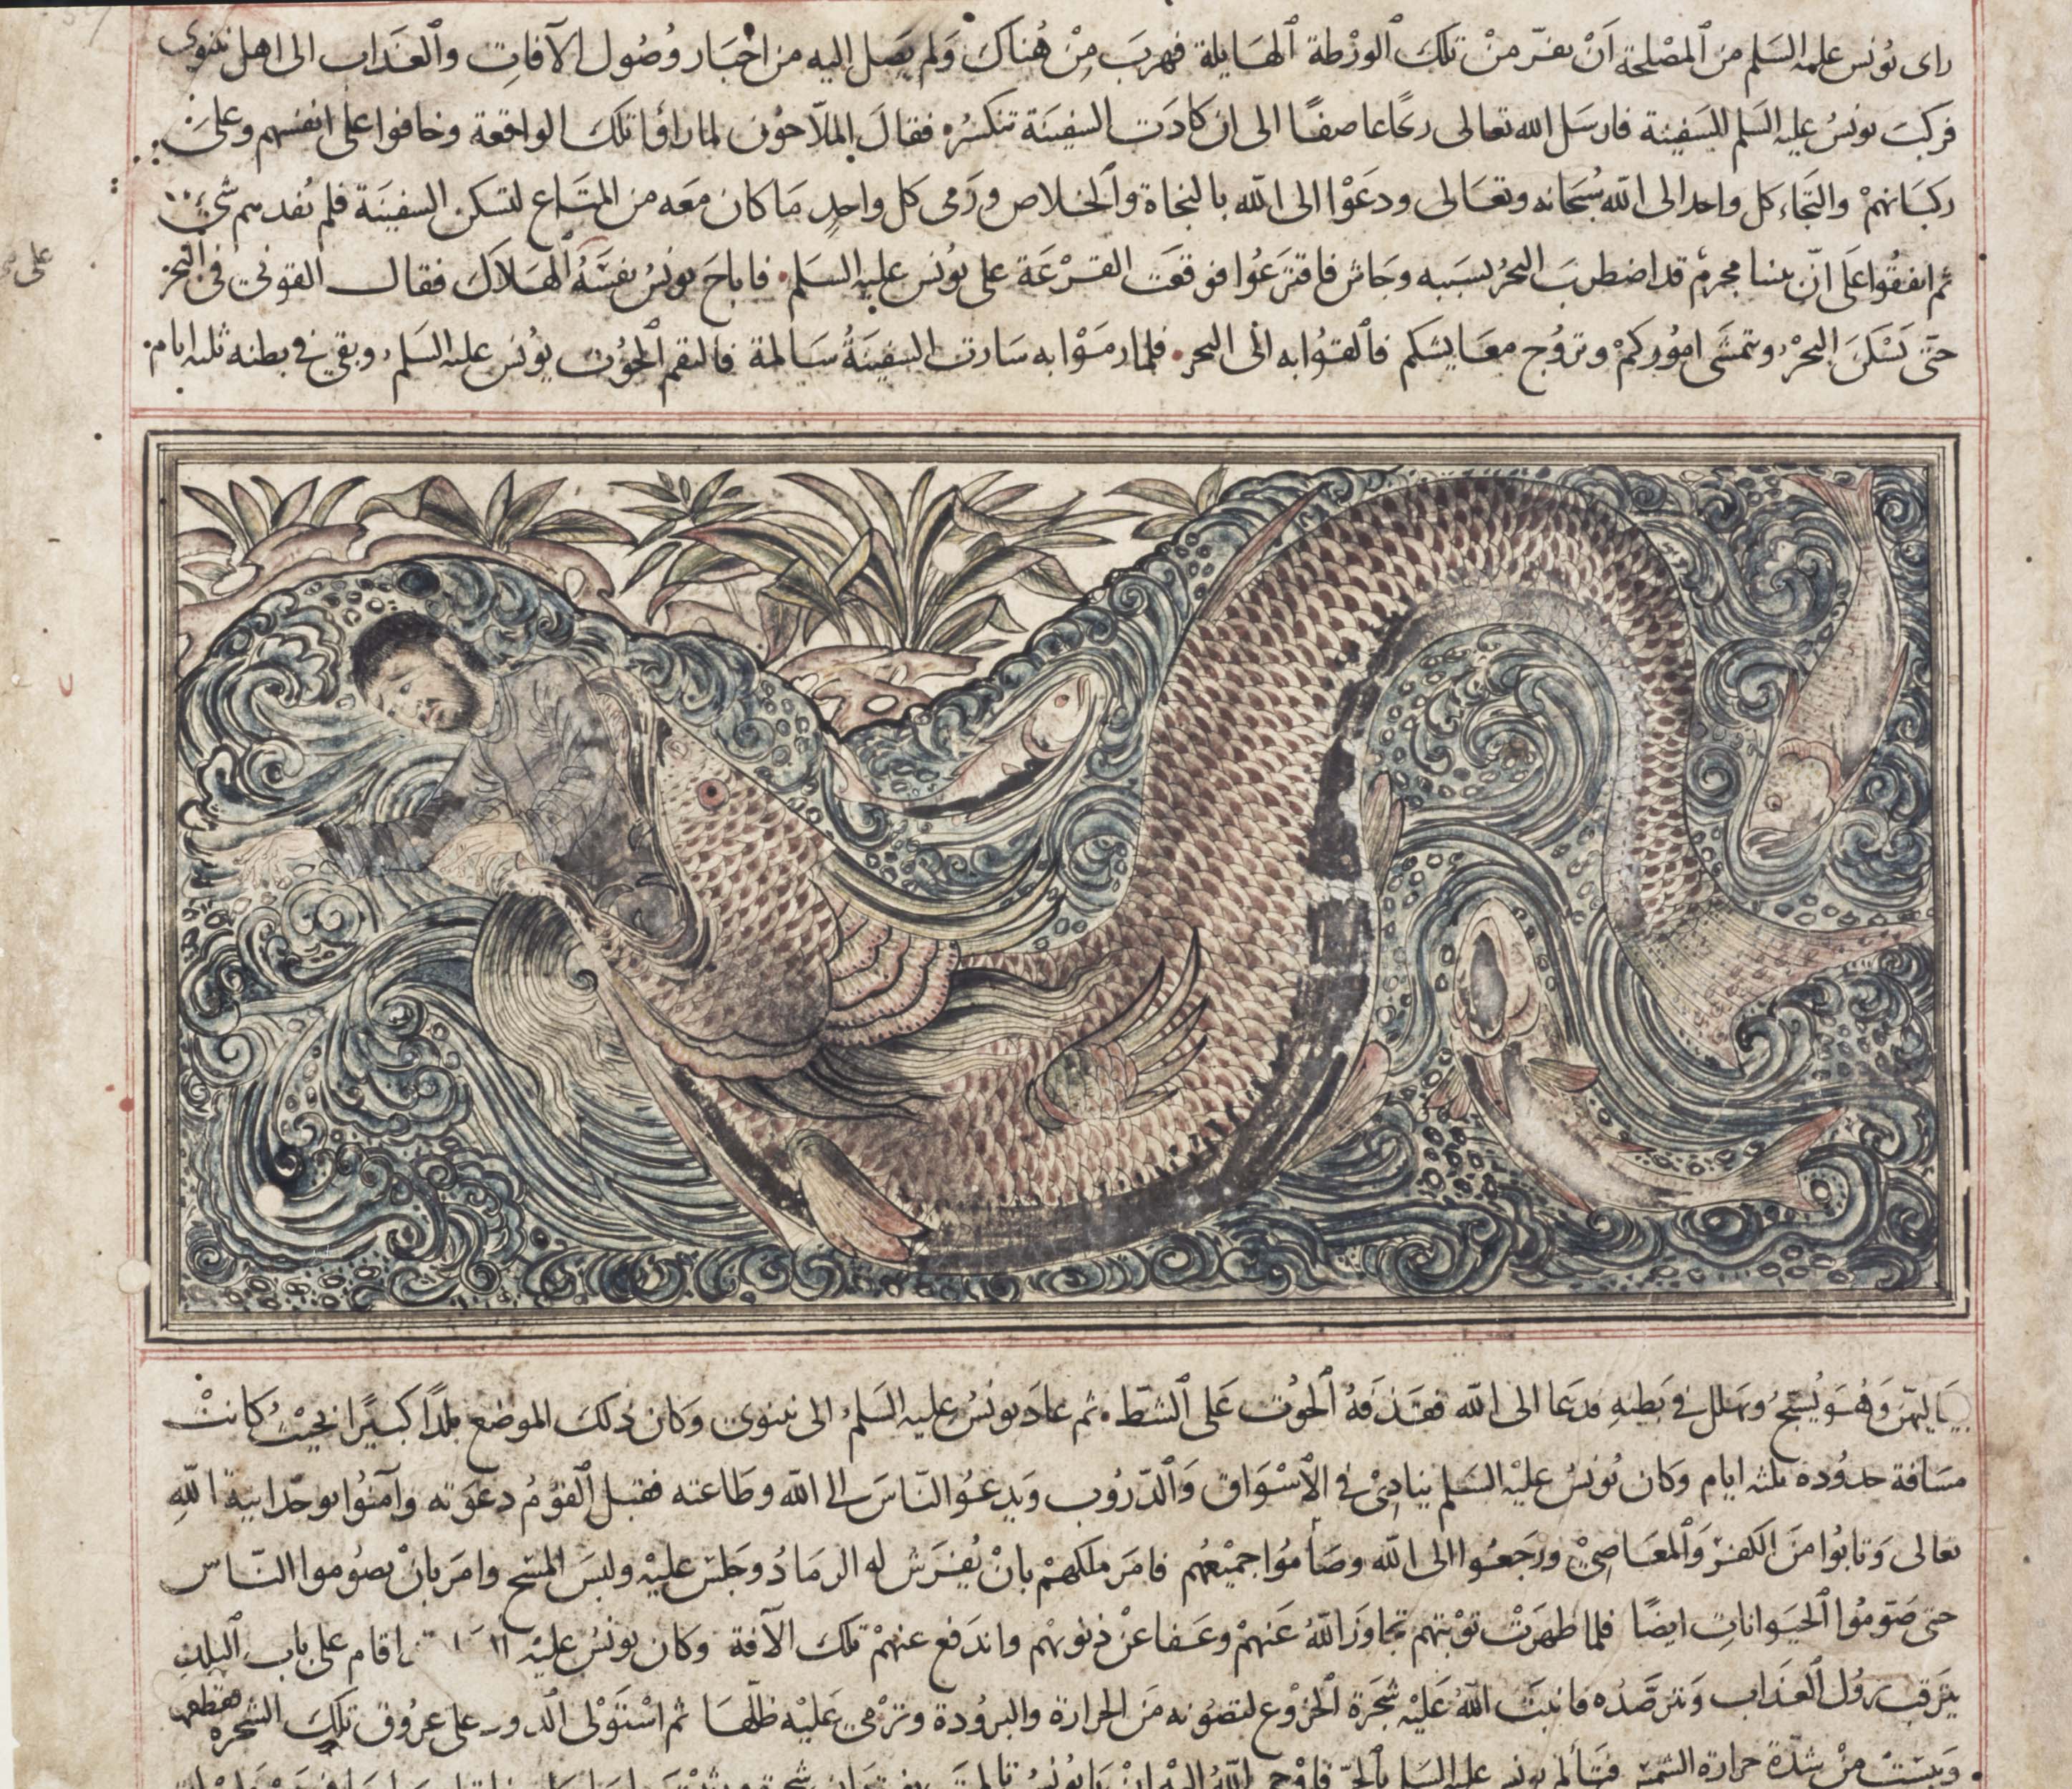 راى يونس عليه السلم من المصلحة اَنْ يفرّ منْ تلك الورْطة الهايلة فهربَ مِنْ هُناك وَلم يَصل اليه من اخبَار وصُول الآفاتِ والعَذاب الى اهل نينوى
فركبَ يونسُ عليه السلم للسفينة فارسَل الله تعالى ريحًا عاصفًا الى ان كادَت السفينَة تنكسرُ فقالَ الملّاحُون لما راوْا تلكَ الواقعة وخافوا على انفسهم وعلى
ركبَانهمْ والتجَاء كل واحد الى الله سُبحَانه وتعَالى ودعَوْا الى الله بالنجاة والخلاص ورَمى كل واحدٍ مَا كان معَه من المتَاع لتسكن السفينَة فلم يُفدهم شئ
ثم اتفقُوا عَلى انّ بيننا مجرمٌ قد اضطربَ البحرُ بسَببه وجَاش فاقترعُوا فوقعَت القرْعَة على يوُنس عليه السَلم فاباحَ يونسُ نفسَهُ الهَلاكَ فقال القونى فى البحْر
حتّى يَسْكنَ البحْرُ وتتمشّى امُوركمْ وتروُج معَايشكم فالقوُا به الى البحر فلما رمَوْا به سَارت السفينَةُ سَالمة فالتقم الحُوُت يوُنس عليه السَلم وبقى فى بطنه ثلثه ايام
بلياليهنّ وَهُوَ يُسَبّحُ ويهلل فى بَطنهِ فدعَا الى الله فقذفَهُ الحوُت عَلى الشطّ ثم عادَ يونسُ عليه السَلمُ الى نينوى وَكان ذلكَ الموضع بلدًا كبيرًا بحيْثُ كانتْ
مسَافة حدُوده ثلثه ايام وَكان يُونسُ عليْه السَلم ينادِىْ فى الاسْوَاق وَالدّرُوب وَيدعُوُ النّاسَ الى الله وطَاعته فقبل القوْمُ دعوَته وآمنُوا بوحْدانية اللهِ
تعالى وَتابوُا منَ الكفرْ وَالمعَاصِىْ ورَجعُوا الى الله وصَامُوا جميْعُهم فامَر ملكهمْ بانْ يُفرَش له الرمَادُ وجَلسَ عليْه ولبسَ المسْح وامَر بانْ يصُوموا النّاس
حتى صَوّمُوا الحيَواناتِ ايضًا فلما ظهرَتْ توْبتهم تجاوَزَ اللهُ عَنهمْ وعَفا عنْ ذنوبهم واندَفع عنهمْ تلكَ الآفة وكان يونسُ عليْه اقام على باب البلد
يترقب نزول العَذاب وَيترصّدُه فانبتَ اللهُ عَليْه شجَرة الخرْوَع لتصُوْنه منَ الحرارة والبرُودة وترْمى عَليْه ظلّهَا ثم اسْتوَلى الدّود على عرُوق تلك الشجره فقطعها
ويبسَتْ منْ شدّة حرارة الشمس فتَألم يونس عليه السَلم